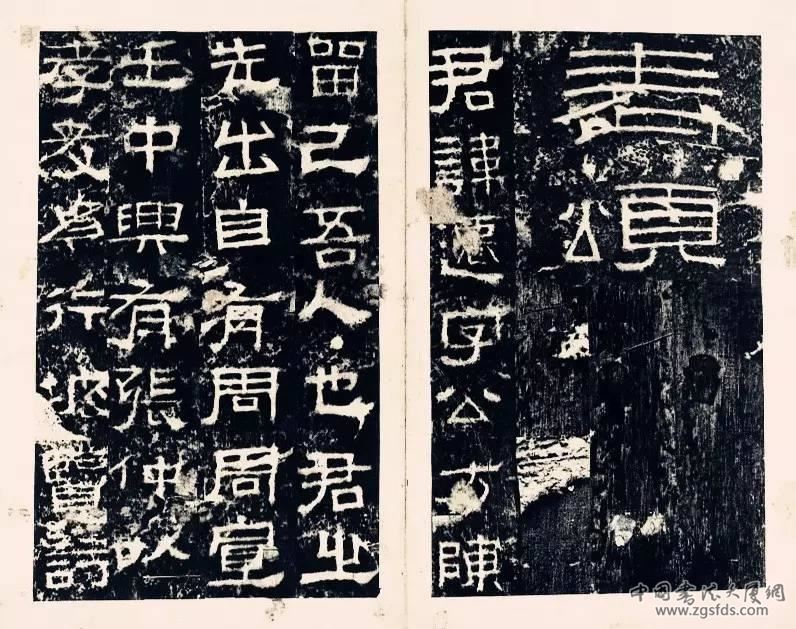 表頌
君諱遷字公方陳
留己吾人也君之
先出自有周周宣
王中興有張仲以
孝友為行披覽詩
中国书法大厦網
www.zgsfds.com